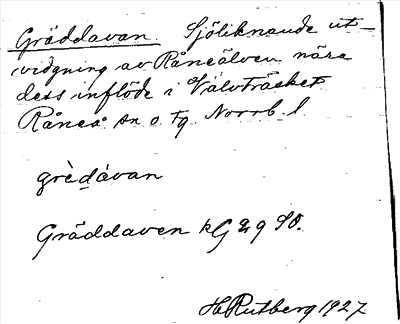 Gräddavan. Sjöliknande ut-
vidgning av Råneälven nära
dess inflöde i Välvträsket
Råneå sn o. tg Norrb. l
grèdávan
Gräddaven kG 29 SO.
H Rutberg 1927